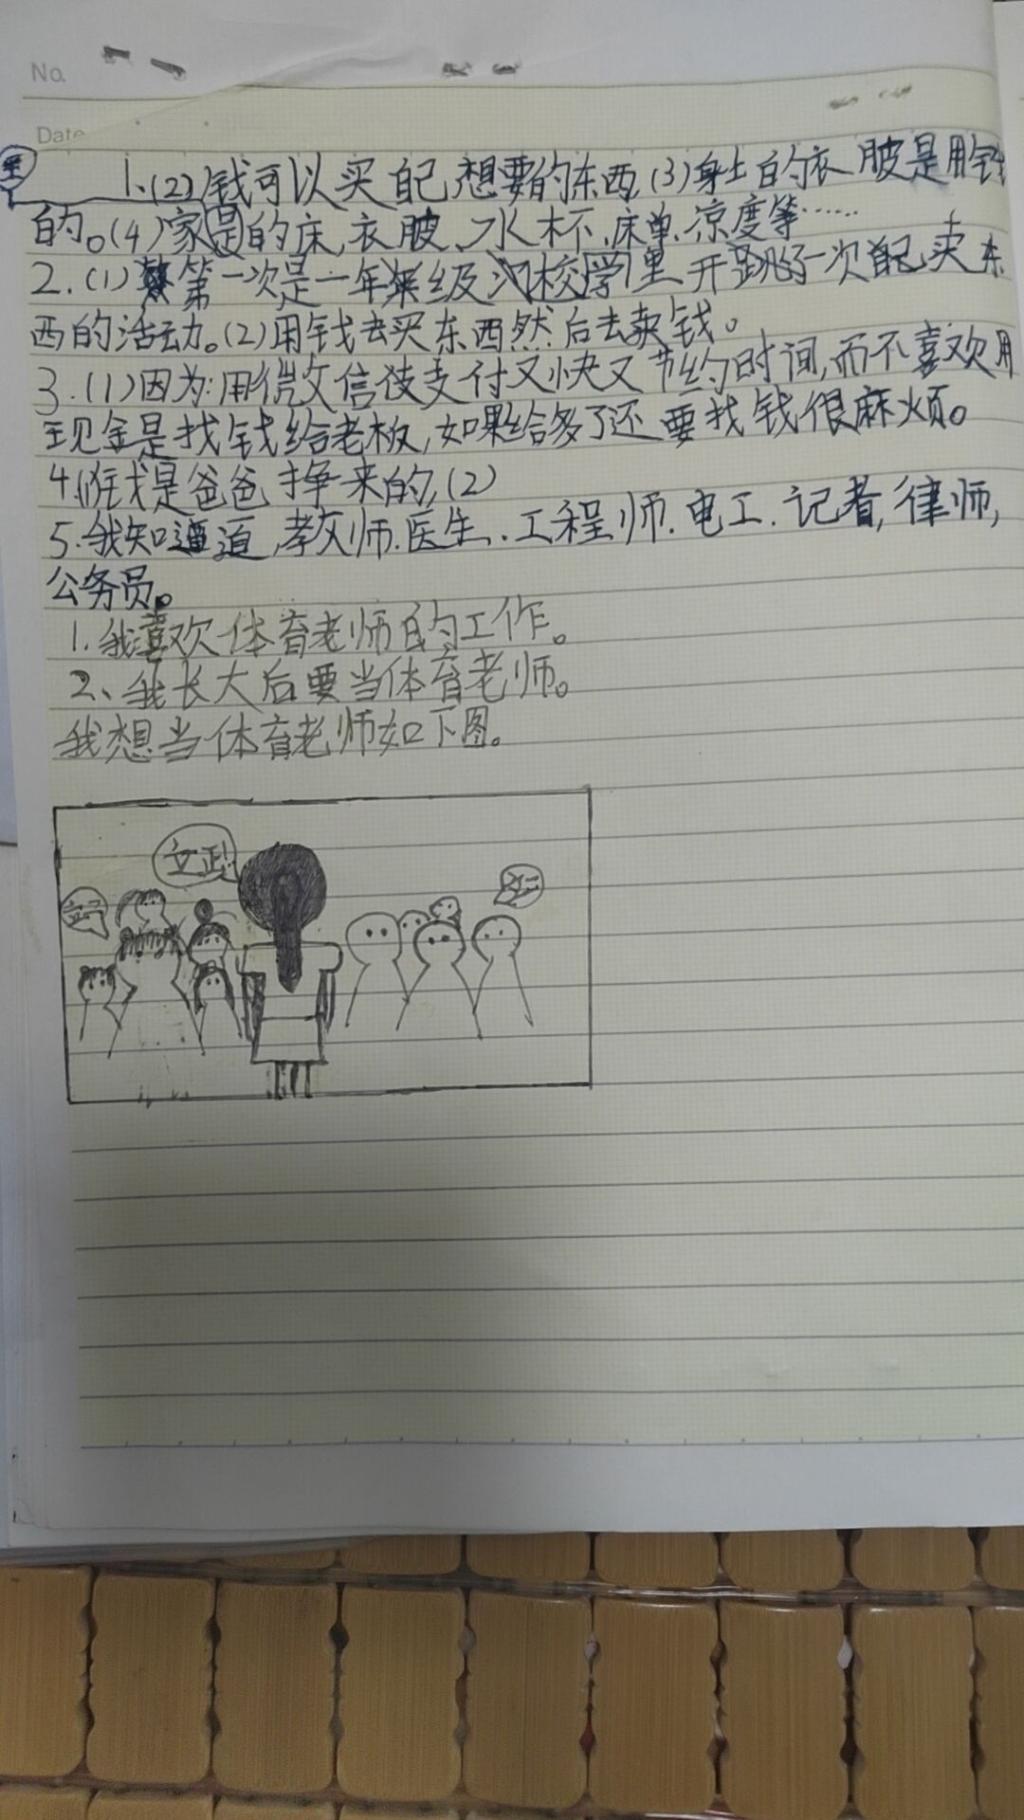 No.
Date
1.(2)钱可以买自己想要的东西,(3)身上的衣服是用钱
的。(4)家里的床,衣服、水杯,床单,凉度等……
2.(1)第一次是一年级学校里开跳了一次自己卖东
西的活动。(2)用钱去买东西然后去卖钱。
3.(1)因为:用微信支付又快又节约时间,而不喜欢用
现金是找钱给老板,如果给多了还要找钱很麻烦。
4.(1)钱是爸爸挣来的,(2)
5.我知道,教师.医生.工程师.电工.记者,律师,
公务员。
1.我喜欢体育老师的工作。
2、我长大后要当体育老师。
我想当体育老师如下图。
立正!